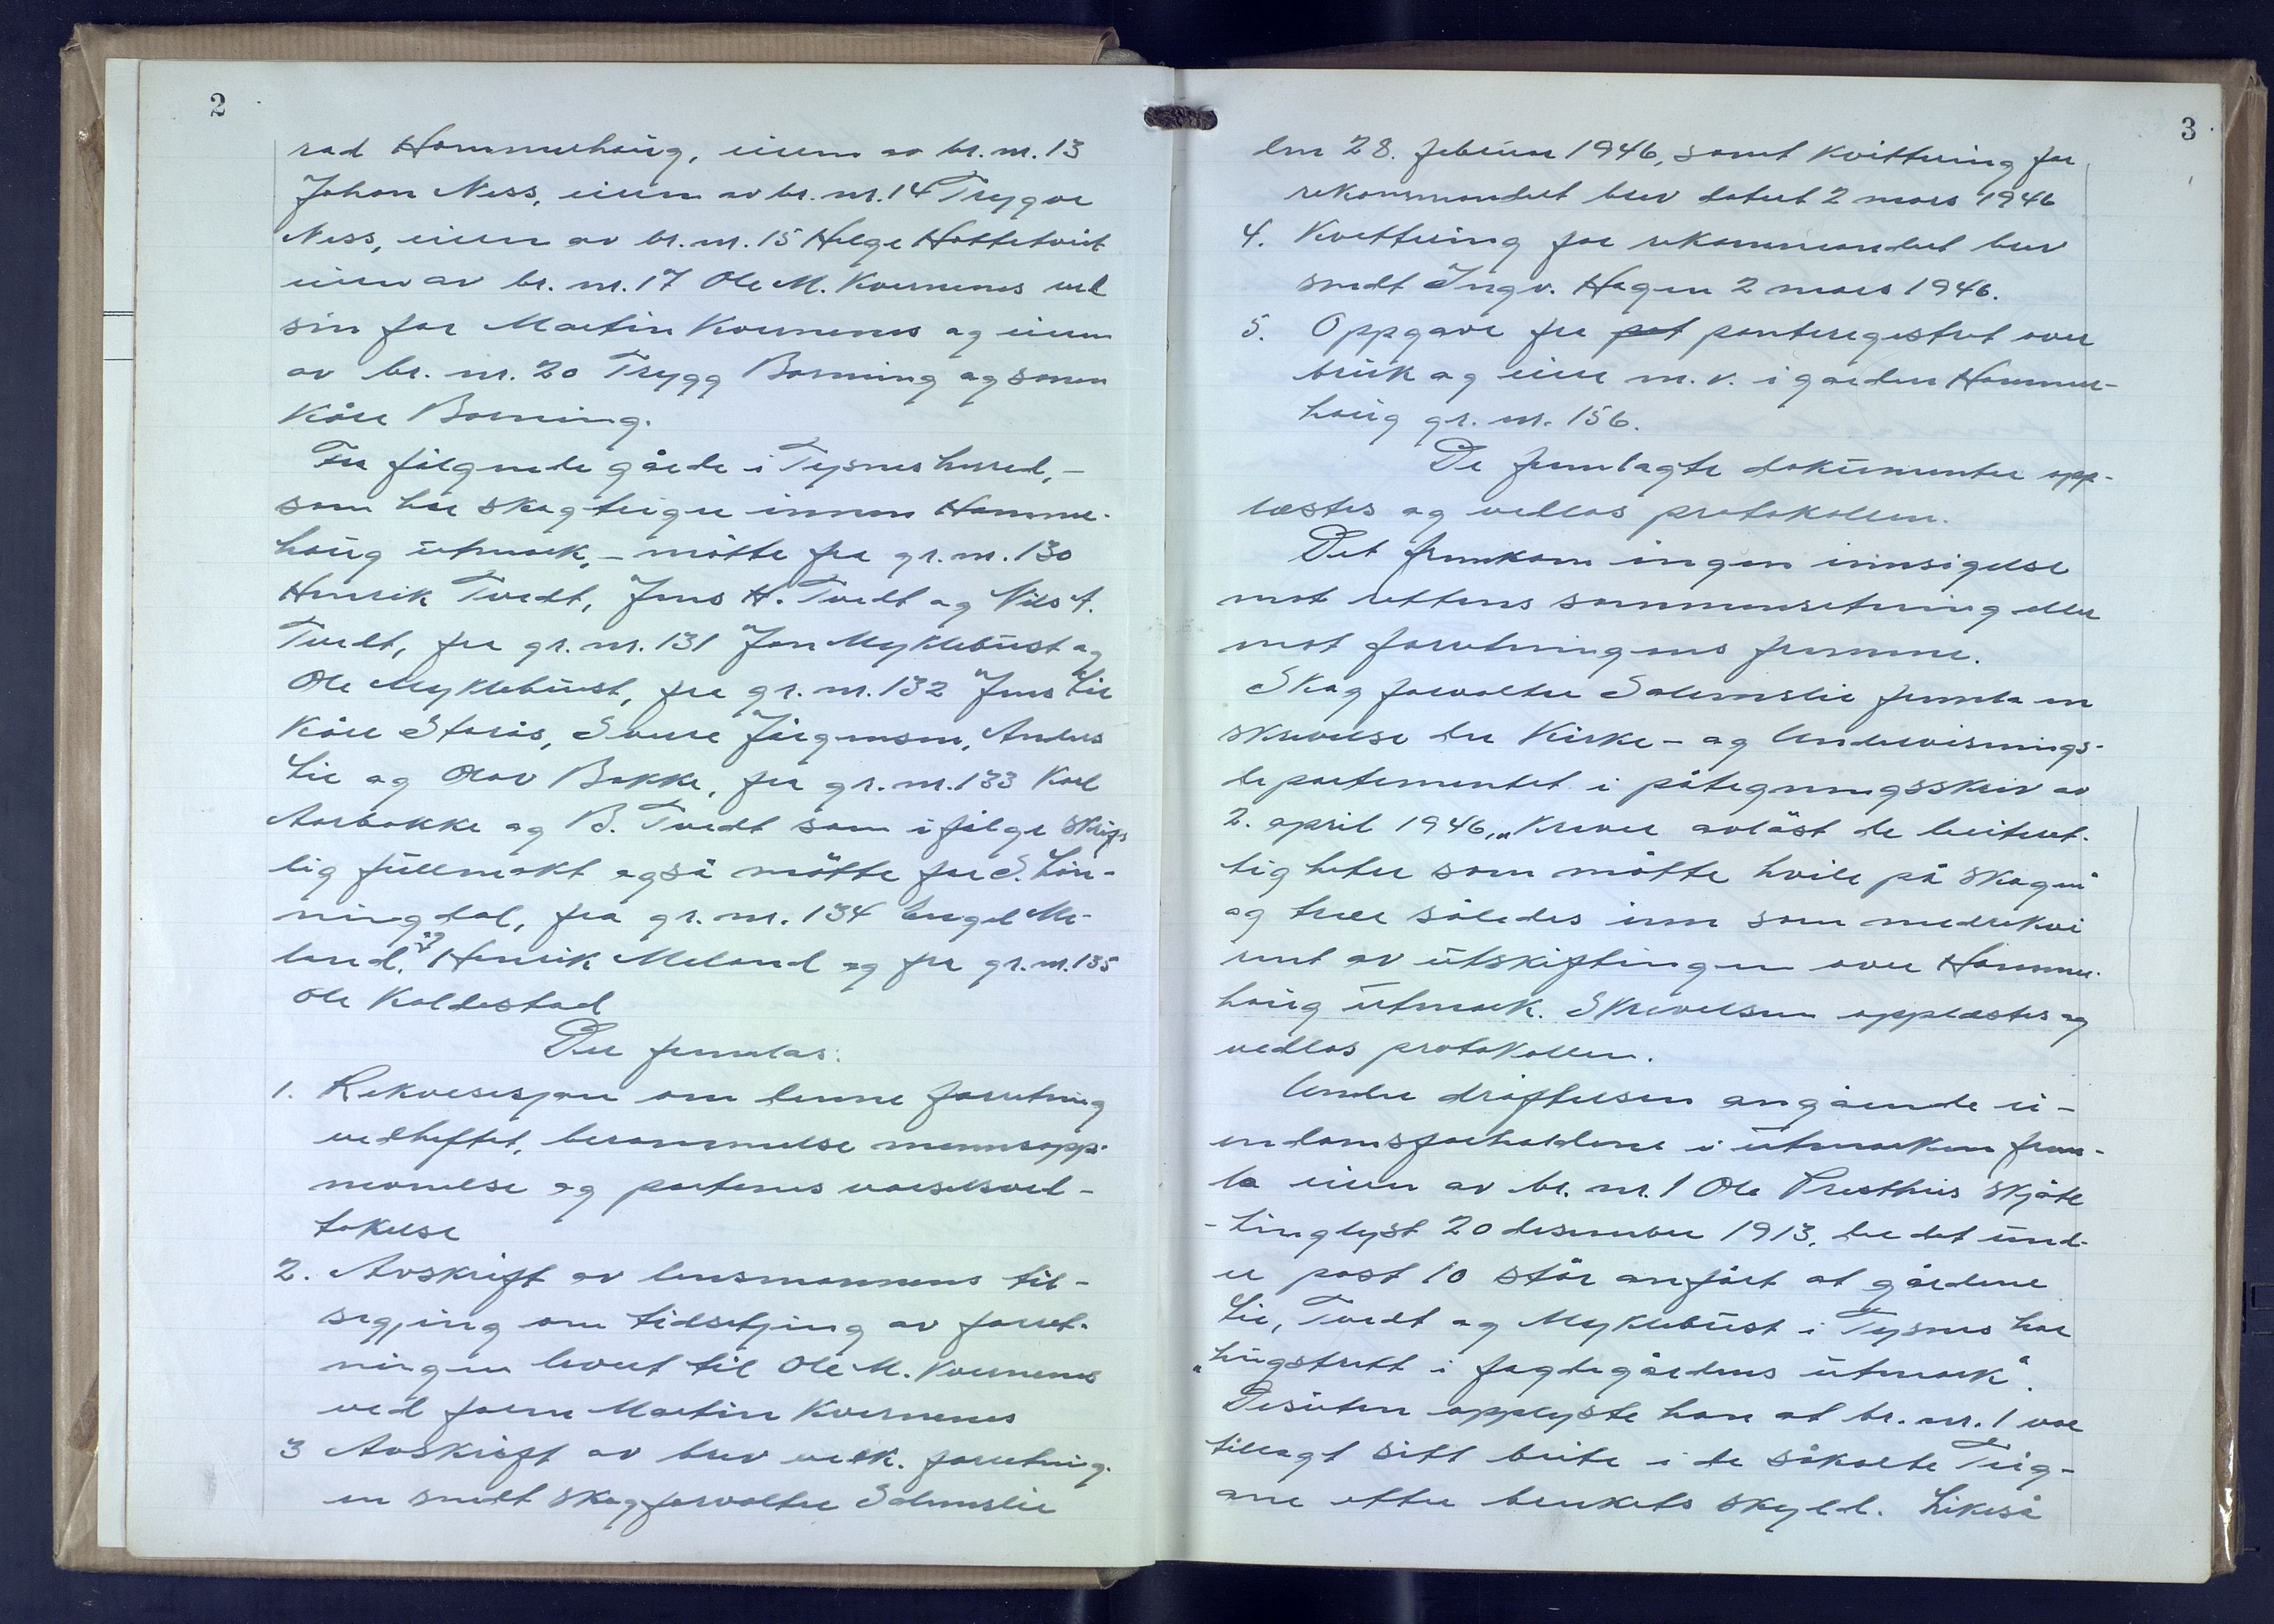 2
rad Hammerhaug, eieren av br. nr. 13
Johan Ness, eieren av br. nr. 14 Trygve
Ness, eieren av br. nr. 15 Helge Hattetvit
eieren av br. nr. 17 Ole M. Kvernenes ved
sin far Martin Kvernenes og eieren
av br. nr. 20 Trygg Borning og sonen
Kåre Borning.
Fra følgende gårde i Tysnes herred, -
som har skogteiger innen Hammer-
haug utmark, - møtte fra gr. nr. 130
Henrik Tvedt, Jens H. Tvedt og Nils A.
Tvedt, fra gr. nr. 131 Jon Myklebust og
Ole Myklebust, fra gr. nr. 132 Jens Lie
Kåre Storås, Sverre Jørgensen, Anders
Lie og Olav Bakke, fra gr. nr. 133 Karl
Aarbakke og B. Tvedt som ifølge skrift
lig fullmakt også møtte for S. Løn-
ningdal, fra gr. nr. 134 Engel Me-
land, og Henrik Meland og fra gr. nr. 135
Ole Kaldestad
Der fremlas:
1. Rekvisisjon om denne forretning
vedheftet, berammelse mennsopp-
nevnelse og partenes varselsved-
takelse
2. Avskrift av lensmannens til-
segjing om tidsetjing av forret-
ningen levert til Ole M. Kvernenes
ved faren Martin Kvernenes
3 Avskrift av brev vedk. forretning-
en sendt skogforvalter Solemslie
3
den 28. februar 1946, samt kvittering for
rekommandert brev datert 2 mars 1946
4. Kvittering for rekommandert brev
sendt Ingv. Hagen 2 mars 1946.
5. Oppgave fra pat panteregistret over
bruk og eier m. v. i garden Hammer-
haug gr. nr. 156.
De fremlagte dokumenter opp-
læstes og vedlas protokollen.
Det fremkom ingen innsigelse
mot rettens sammensetning eller
mot forretningens fremme.
Skogforvalter Solemslie fremla en
skrivelse der Kirke- og Undervisnings-
departementet i påtegningsskriv av
2. april 1946, „krever avløst de beiteret-
tigheter som måtte hvile på skogen"
og trer således inn som medrekvi
rent av utskiftingen over Hammer-
haug utmark. Skrivelsen opplæstes og
vedlas protokollen.
Under drøftelsen angående ei-
endomsforholdene i utmarken frem-
la eieren av br. nr. 1 Ole Presthus skjøte
- tinglyst 20 desember 1913, der det und-
er post 10 står anført at gårdene
Lie, Tvedt og Myklebust i Tysnes har
„hugstrett i fogdegårdens utmark".
Desuten opplyste han at br. nr. 1 var
tillagt sitt beite i de såkalte Teig-
ane etter brukets skyld. Likeså